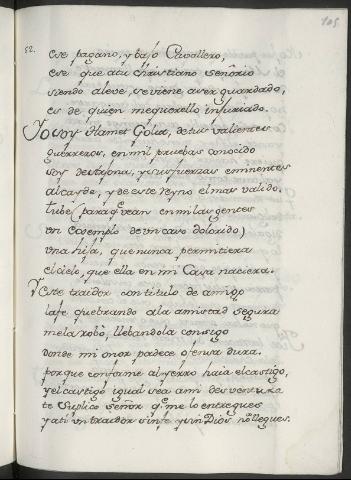 105
52.
ese pagano, y bajo Cavallero,
ese que a tu christiano señorio
siendo aleve, se viene a ver guardado,
es de quien me querello injuriado.
Yo soy Hamet Golut, de tus valientes
guerreros, en mil pruebas conocido
soy de Arjona, y sus fuerzas eminentes
alcayde, y de este reyno el mas valido.
tube (para q̃ vean en mi las gentes
un exemplo de un caso dolorido)
una hija, que nunca permitiera
el cielo, que ella en mi Casa naciera.
Y este traidor con titulo de amigo
la fe quebrando a la amistad segura
me la robò, llebandola consigo
donde mi onor padece ofensa dura.
porque conforme al yerro haia el castigo,
y el castigo igual sea a mi desventura
te suplico señor q̃ me lo entregues
y a ti un traidor sin fe y sin Dios no llegues.